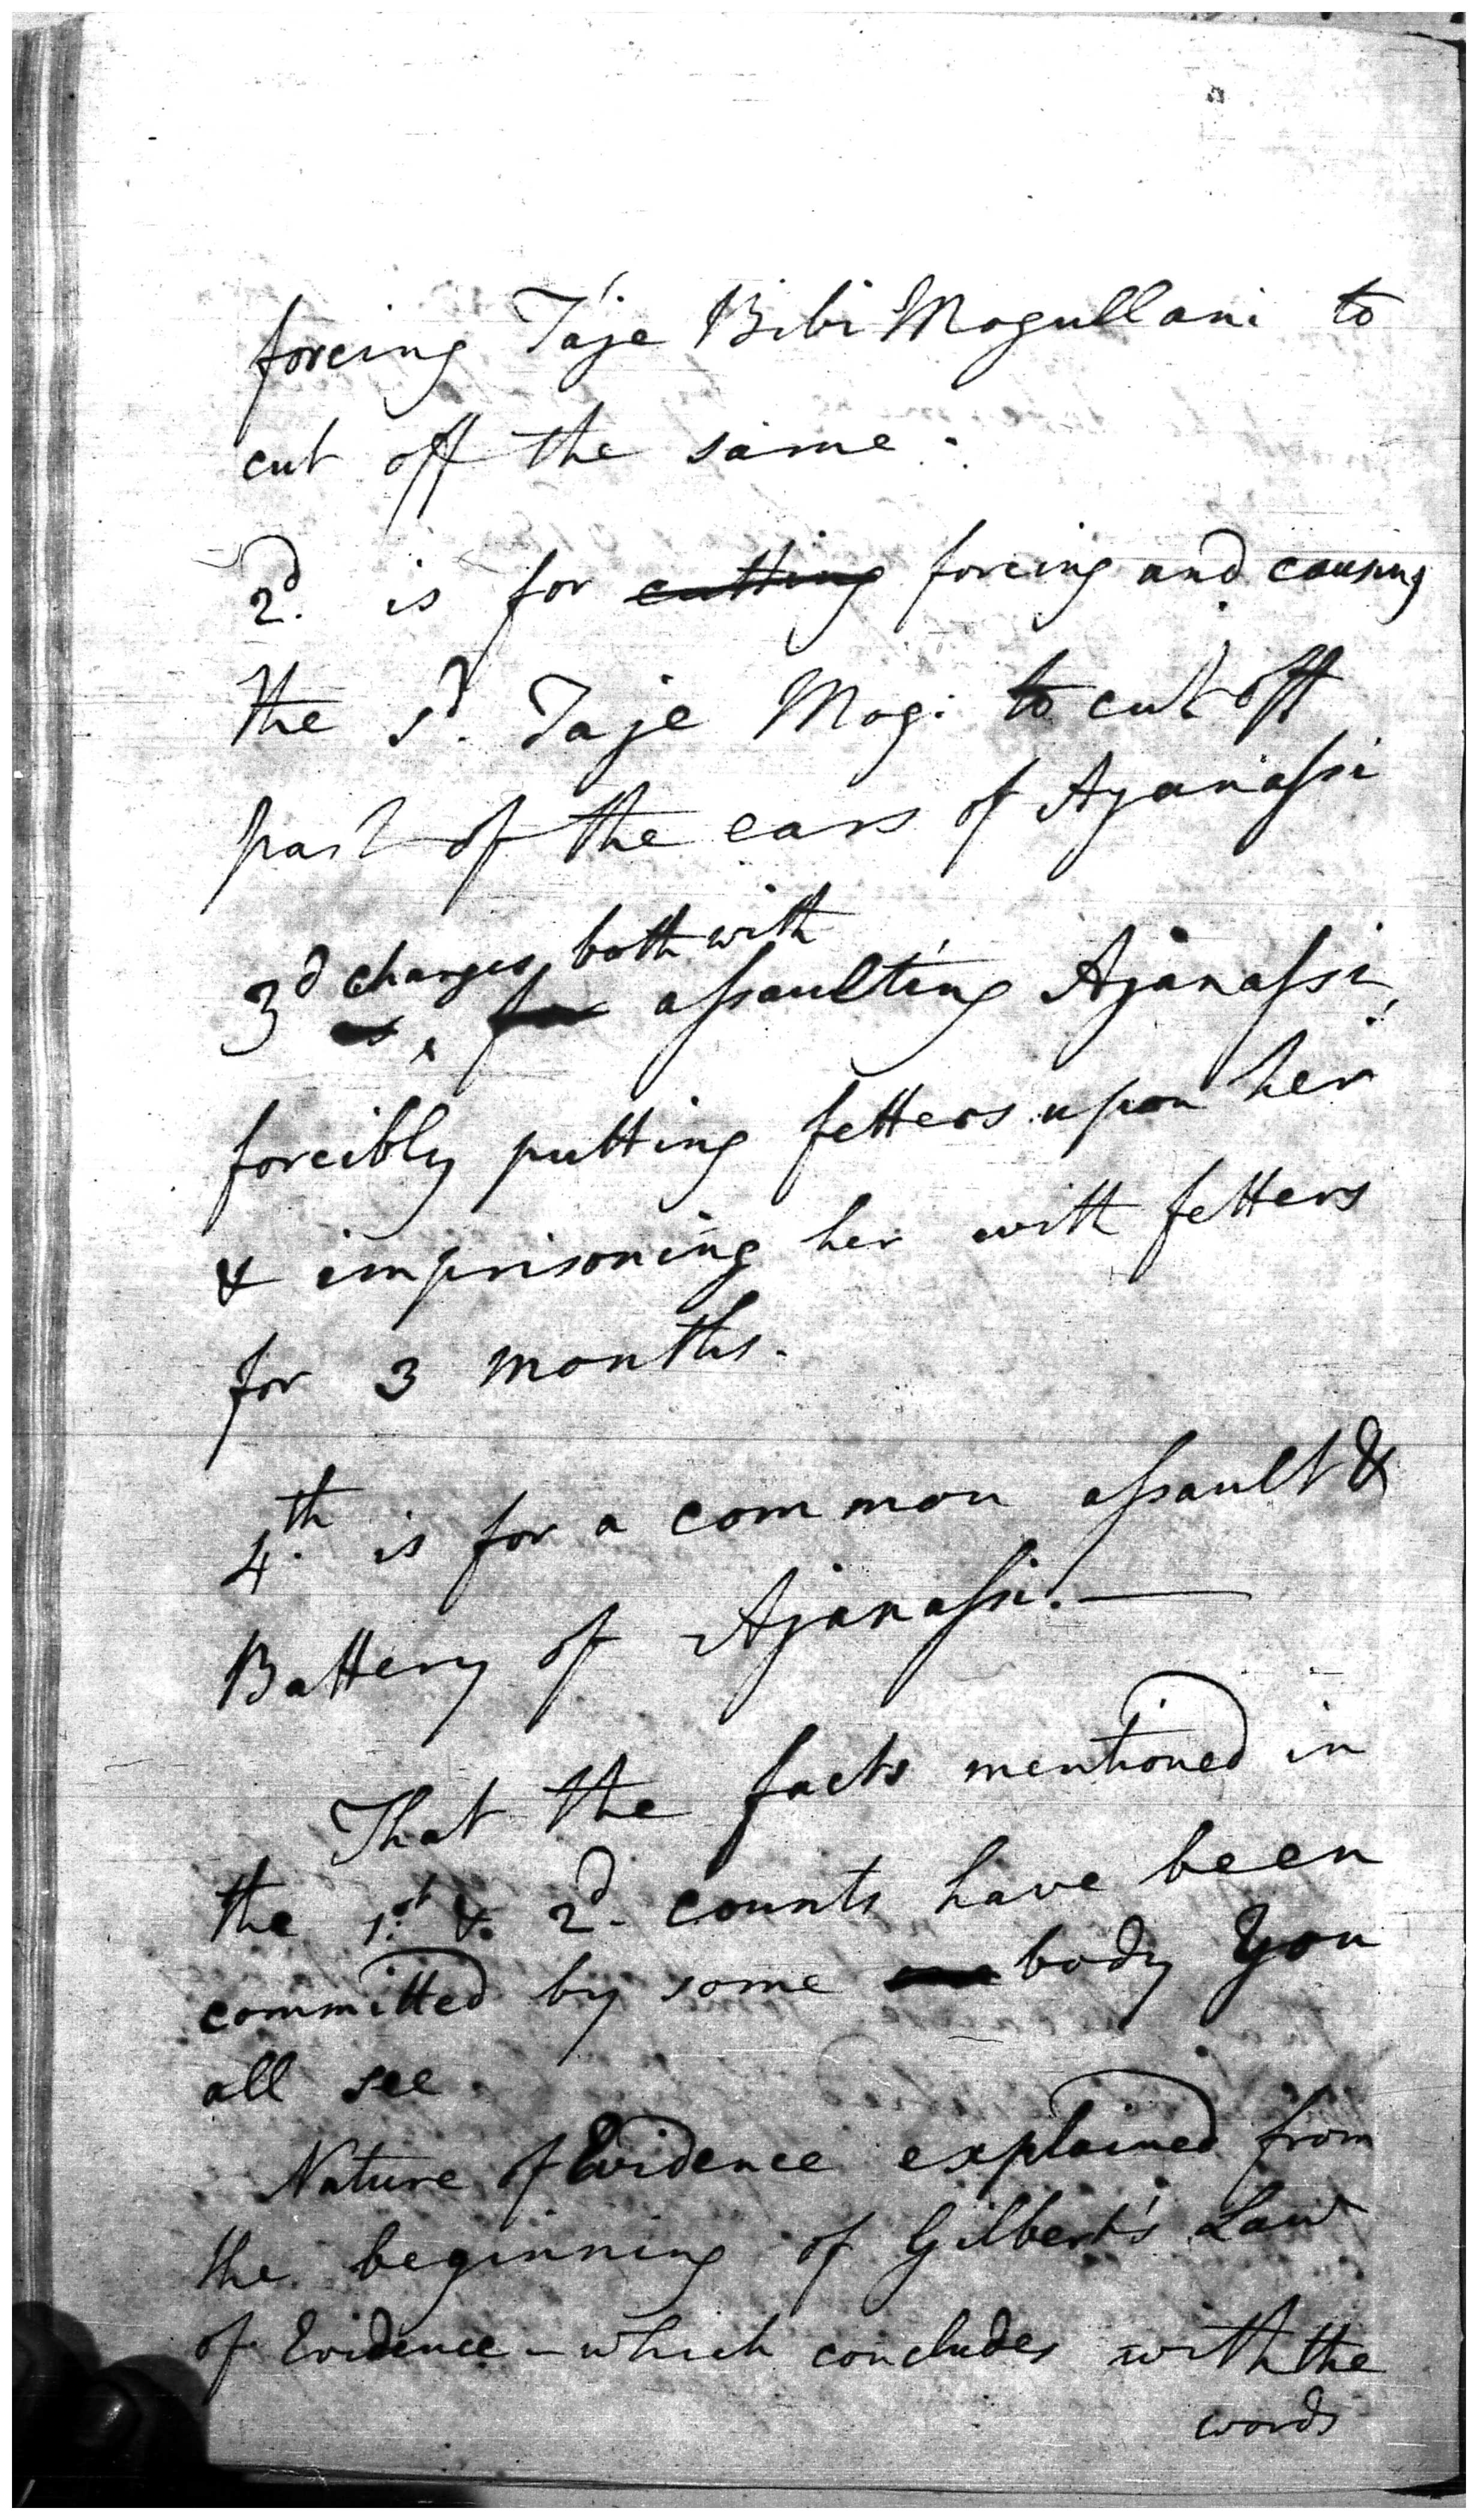 forcing Táje Bibi Mogullani to
cut off the same.
2d. is for cutting forcing and causing
the sd. Taje Mog. to cut off
part of the ears of Ajanassi
3d charges both with
assaulting Ajanassi,
forcibly putting fetters upon her
& imprisoning her with fetters
for 3 months.
4th. is for a common assault &
Battery of Ajanassi.—
That the facts mentioned in
the 1st. & 2d. counts have been
committed by some body You
all see.
Nature of Evidence explained from
the beginning of Gilbert's Law
of Evidence - which concludes with the
words